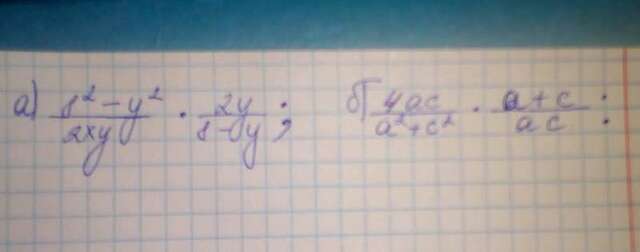 а) (8² - y²)/(2xy) · (2y)/(8 - y); б) (4ac)/(a² + c²) · (a + c)/(ac) :